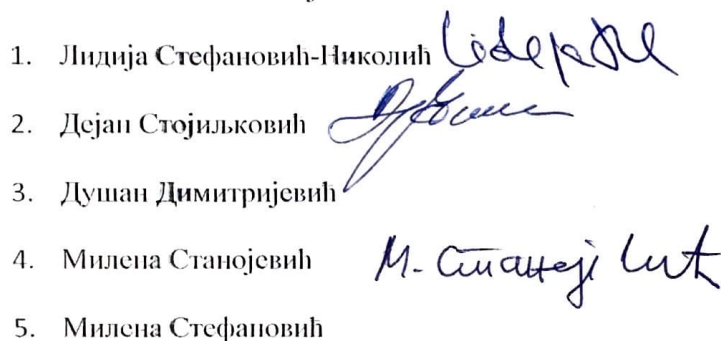 1. Лидија Стефановић-Николић
2. Дејан Стојиљковић
3. Душан Димитријевић
4. Милена Станојевић М. Станојевић
5. Милена Стефановић